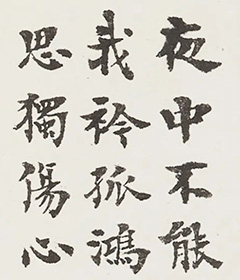 夜中不能
我衿孤鴻
思獨傷心